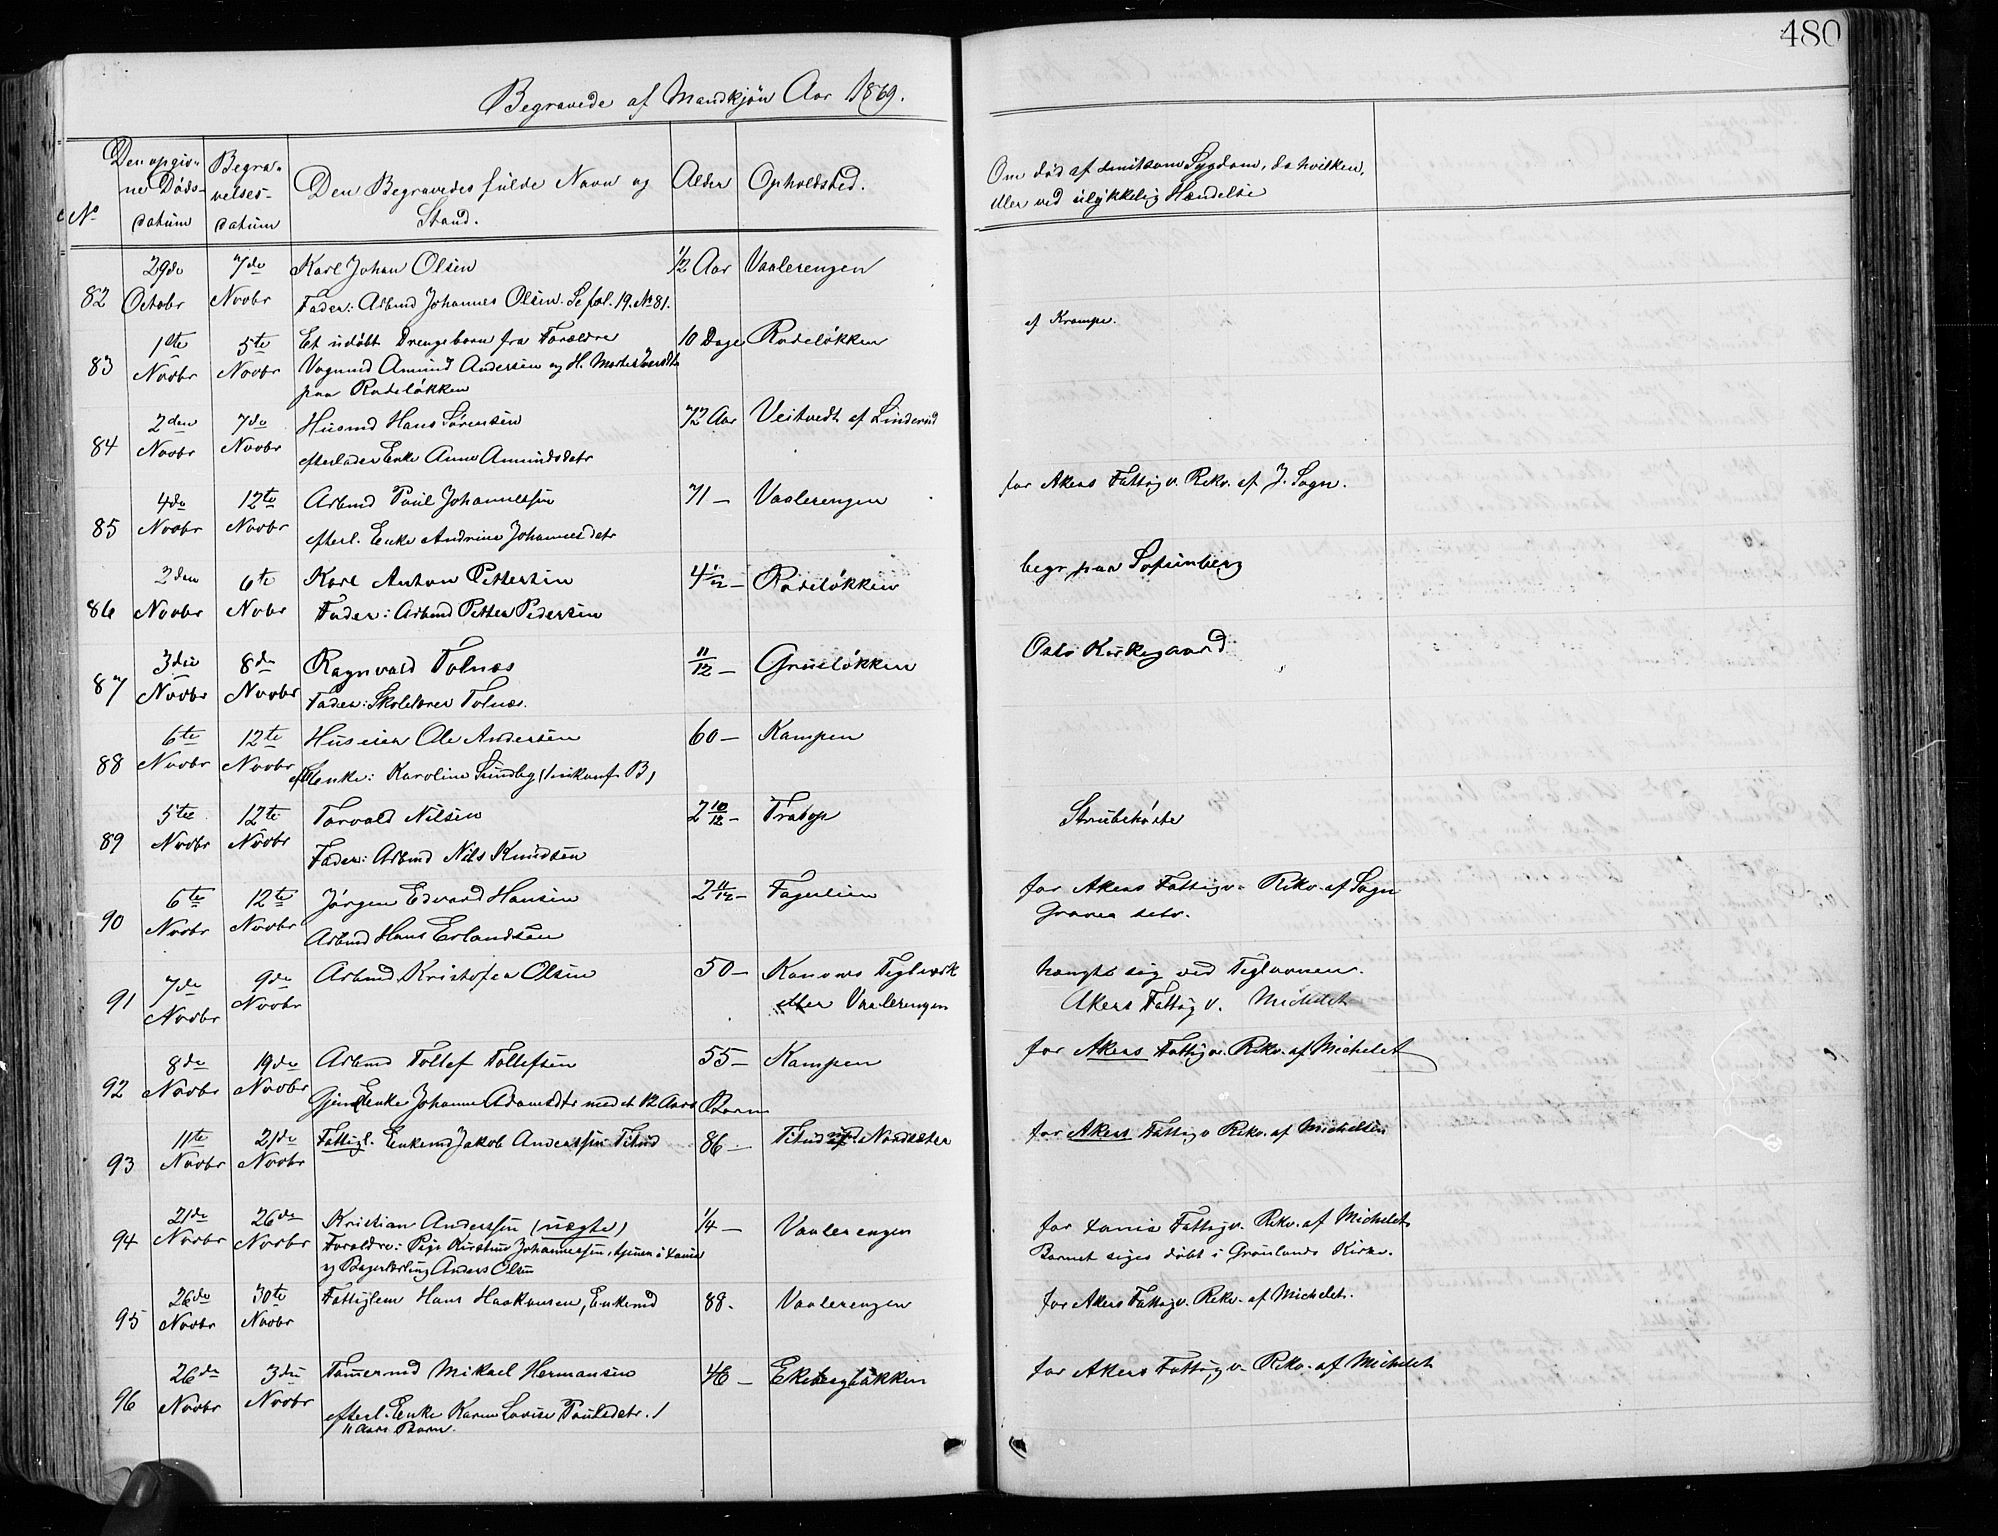 480
Begravede af Mandkjön Aar 1869.
No
Den opgiv-
ne Døds-
datum
Begra-
velses-
datum
Den Begravedes fulde Navn og
Stand.
Alder
Opholdsted.
Om død af smitsom Sygdom, da hvilken,
eller ved ulykkelig Hændelse
29de 7de Karl Johan Olsen 1/2 Aar Vaalerengen
82 Octobr Novbr Fader: Arbmd Johannes Olsen. Se fol. 19. No 81.
af Krampe.
1ste 5te Et udöbt Drengebarn fra Forældre 10 Dage Rodeløkken
83 Novbr Novbr Vognmd Amund Andersen og H.
paa Rodeløkken
2den 7de Husmd Hans Sörensen 72 Aar Veitvedt af Linderud
84 Novbr Novbr efterlader Enke Anne Amundsdatr
4de 12te Arbmd Poul Johannessen 71 — Vaalerengen for Akers Fattigv. Rekv. af J. Sogn.
85 Novbr Novbr efterl. Enke Andrine Johannesdatr
2den 6te Karl Anton Pettersen 4 1/12 — Rodeløkken begr. paa Sofienberg
86 Novbr Nobr Fader: Arbmd Petter Pedersen
3die 8de Ragnvald Tolnæs 11/12 — Grüneløkken Oslo Kirkegaard
87 Novbr Novbr Fader: Skolelærer Tolnæs.
6te 12te Huseier Ole Andersen 60 — Kampen
88 Novbr Novbr Enke: Karoline Sundby
5te 12te Torvald Nilsen 2 10/12 — Fratop Strubehoste
89 Novbr Novbr Fader: Arbmd Nils Knudsen
6te 12te Jörgen Edvard Hansen 2 11/12 — Fagerlien for Akers Fattigv. Rekv. af Sogn
90 Novbr Novbr Arbmd Hans Erlandsen Graver selv.
7de 9de Arbmd Kristofer Olsen 50 — Teglværk hængte sig ved Teglovnen.
91 Novbr Novbr eller Vaalerengen Akers Fattigv. Michelet
8de 19de Arbmd Tollef Tollefsen 55 — Kampen for Akers Fattigv. Rekv. af Michelet
92 Novbr Novbr Enke Johanne Adamsdtr med et 12 Aars Barn
11te 21de Fattigl. Enkemd Jakob Anderssen 86 — Nordsæter for Akers Fattigv Rekv. af Michelsen
93 Novbr Novbr
21de 26de Kristian Anderssen (uægte) 1/4 — Vaalerengen for Fattigv. Rekv. af Michelet
94 Novbr Novbr Forældre: Pige Kirstine Johannessen, tjener i
og Bagerlærling Anders Olsen
Barnet siges döbt i Grönlands Kirke.
26de 30te Fattiglem Hans Haakonsen, Enkemd 88. Vaalerengen for Akers Fattigv. Rekv. af Michelet.
95 Novbr Novbr
26de 3die Tömermd Mikael Hermansen 46 — Ekebergløkken for Akers Fattigv. Rekv. af Michelet
96 Novbr Novbr efterl. Enke Karen Lovise Poulsdatr. 1
11 Aars Barn.